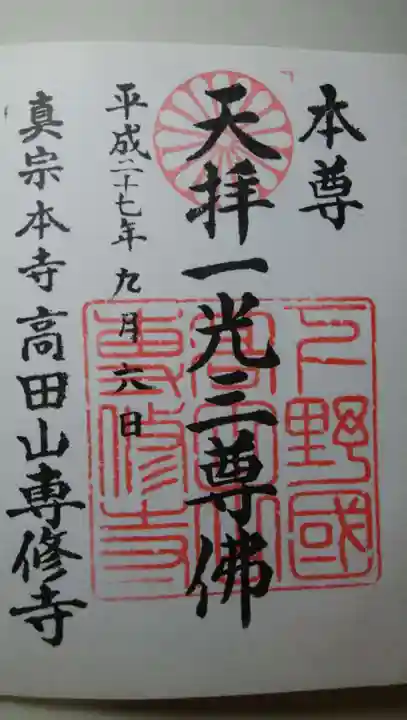 本尊
天拝一光三尊佛
平成二十七年九月六日
真宗本寺高田山専修寺
下野國
高田山
専修寺